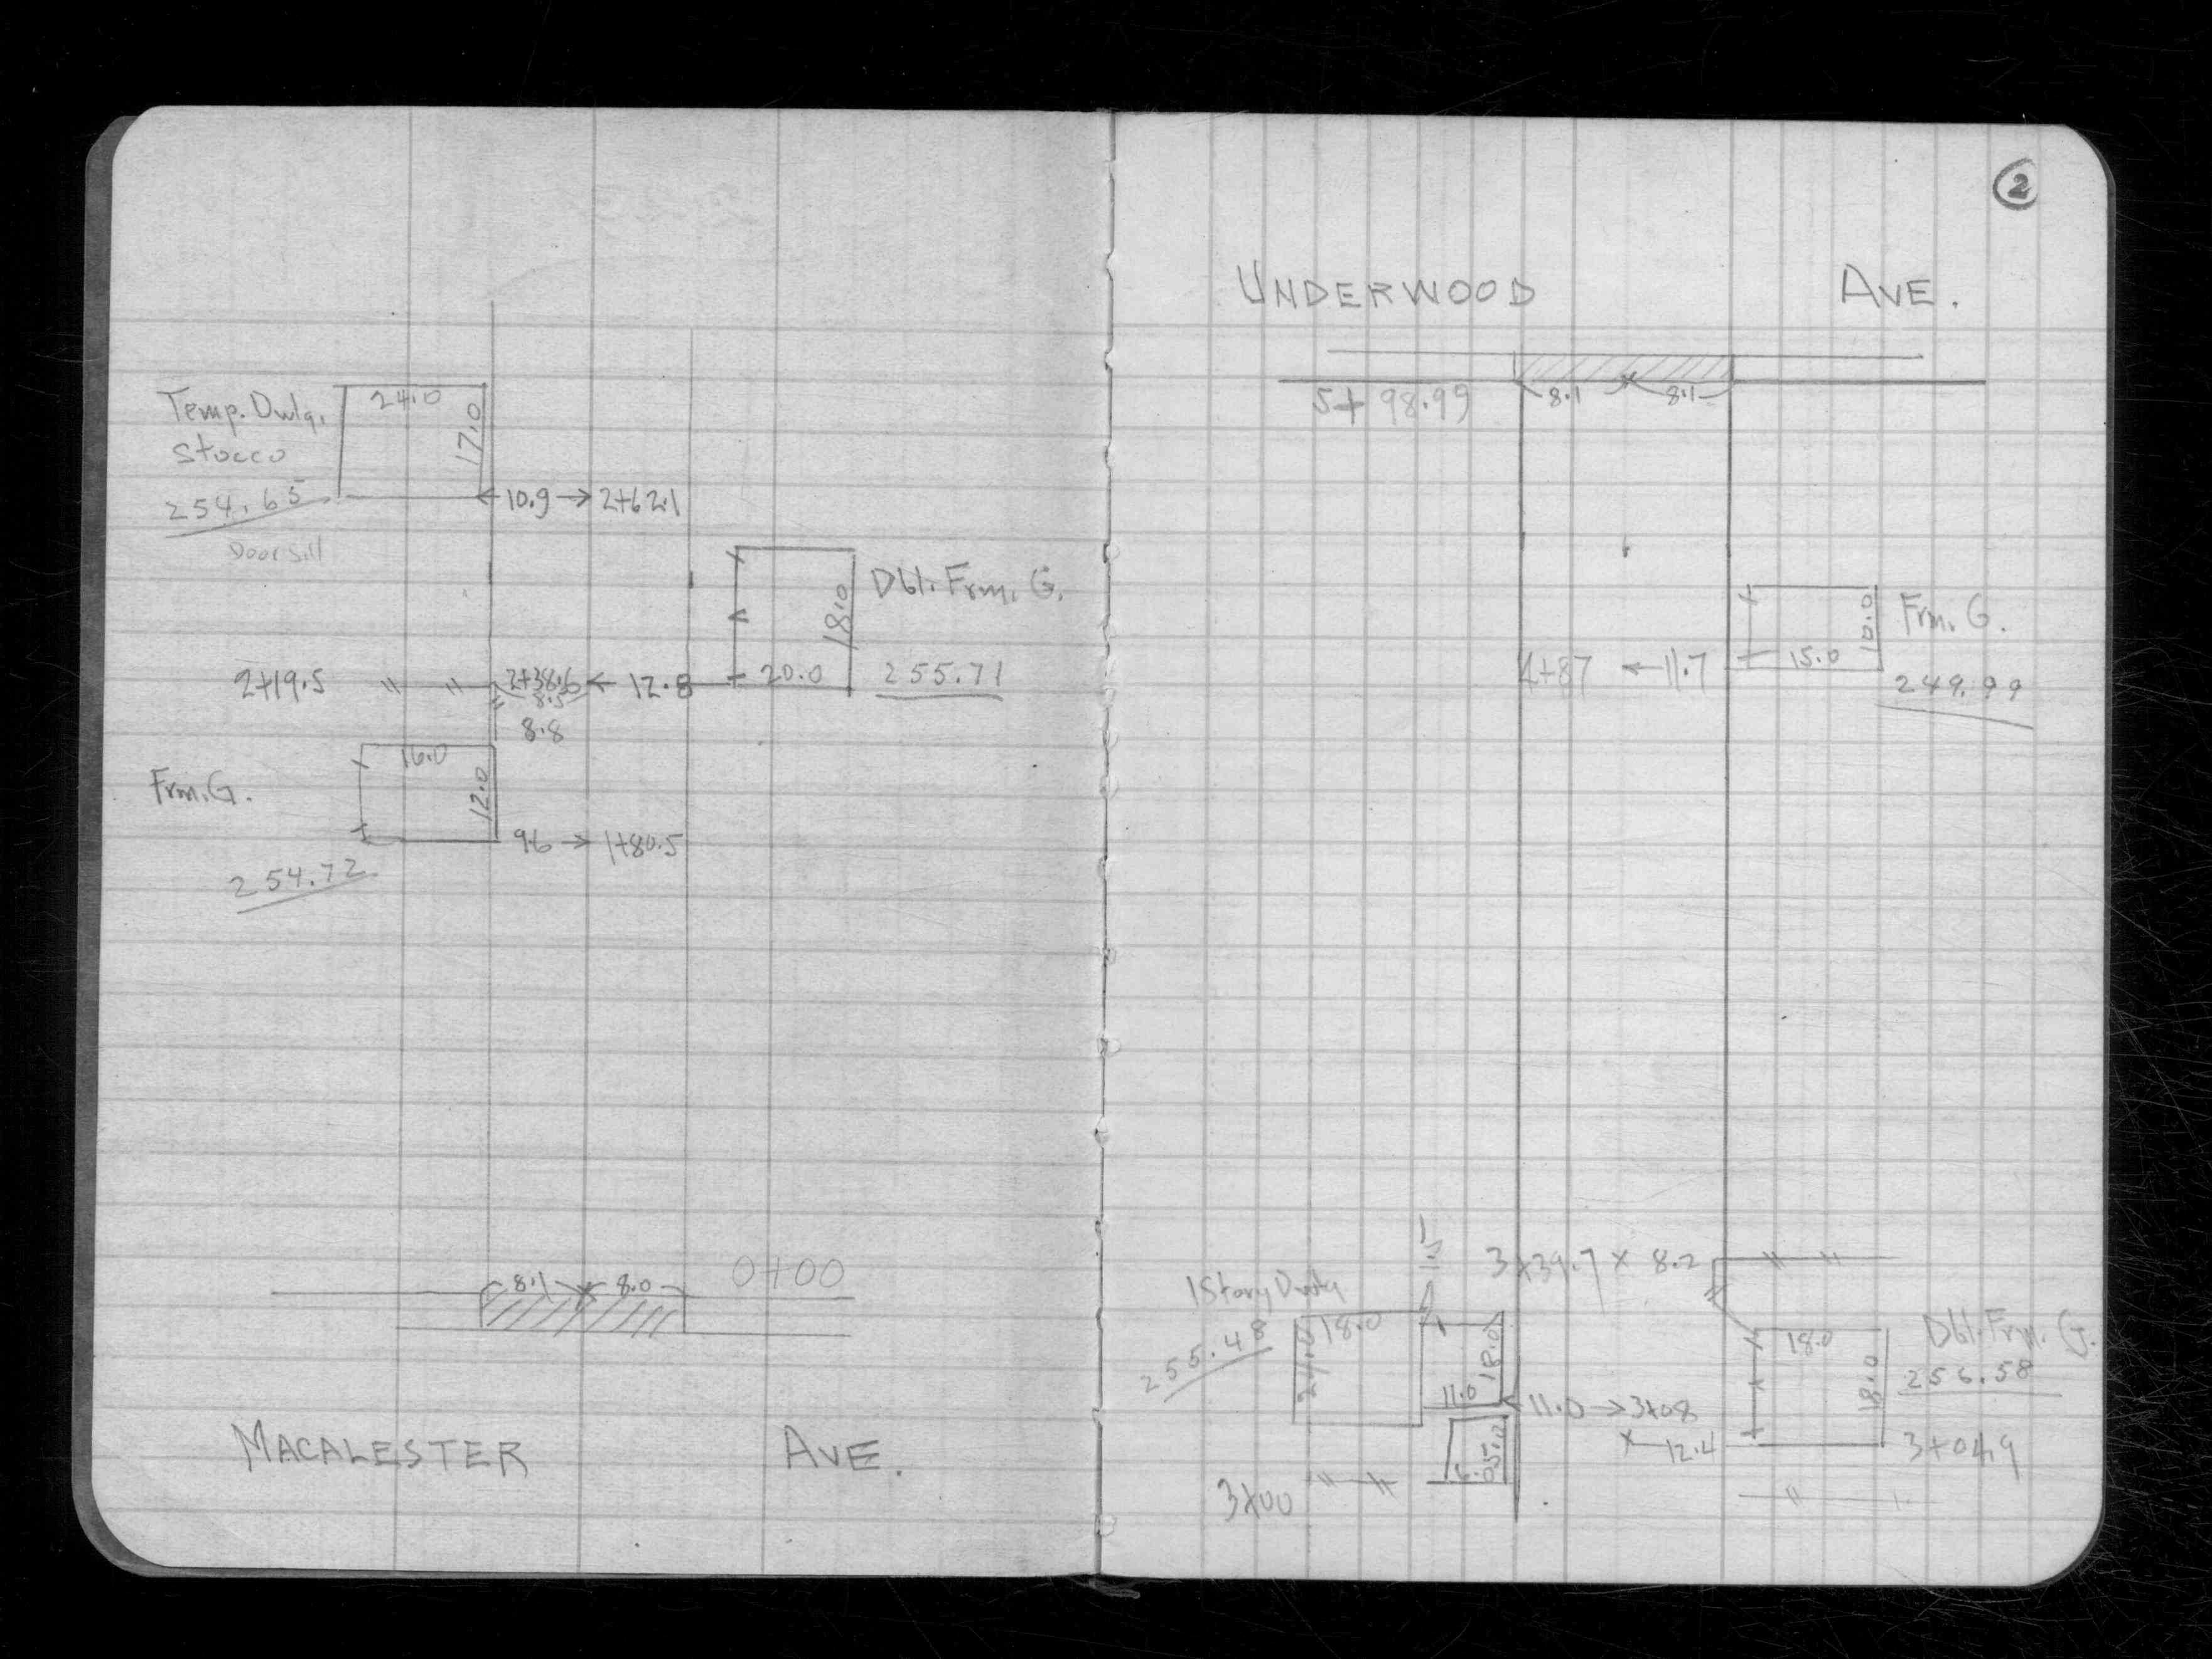 Temp. Dwlg.
Stucco
254.65
Door Sill
24.0
17.0
10.9 → 2+62.1
Dbl. Frm. G.
18.0
20.0
255.71
2+19.5
2+38.6 ← 12.8
8.5
8.8
Frm. G.
16.0
12.0
9.6 → 1+80.5
254.72
8.1
8.0
0+00
MACALESTER AVE.
2
UNDERWOOD AVE.
5+98.99
8.1
8.1
Frm. G.
10.0
15.0
4+87 ← 11.7
249.99
3+39.7 × 8.2
1 Story Dwlg
255.48
18.0
18.0
11.0
11.0 → 3+08
12.4
Dbl. Frm. G.
18.0
18.0
256.58
3+04.9
3+00